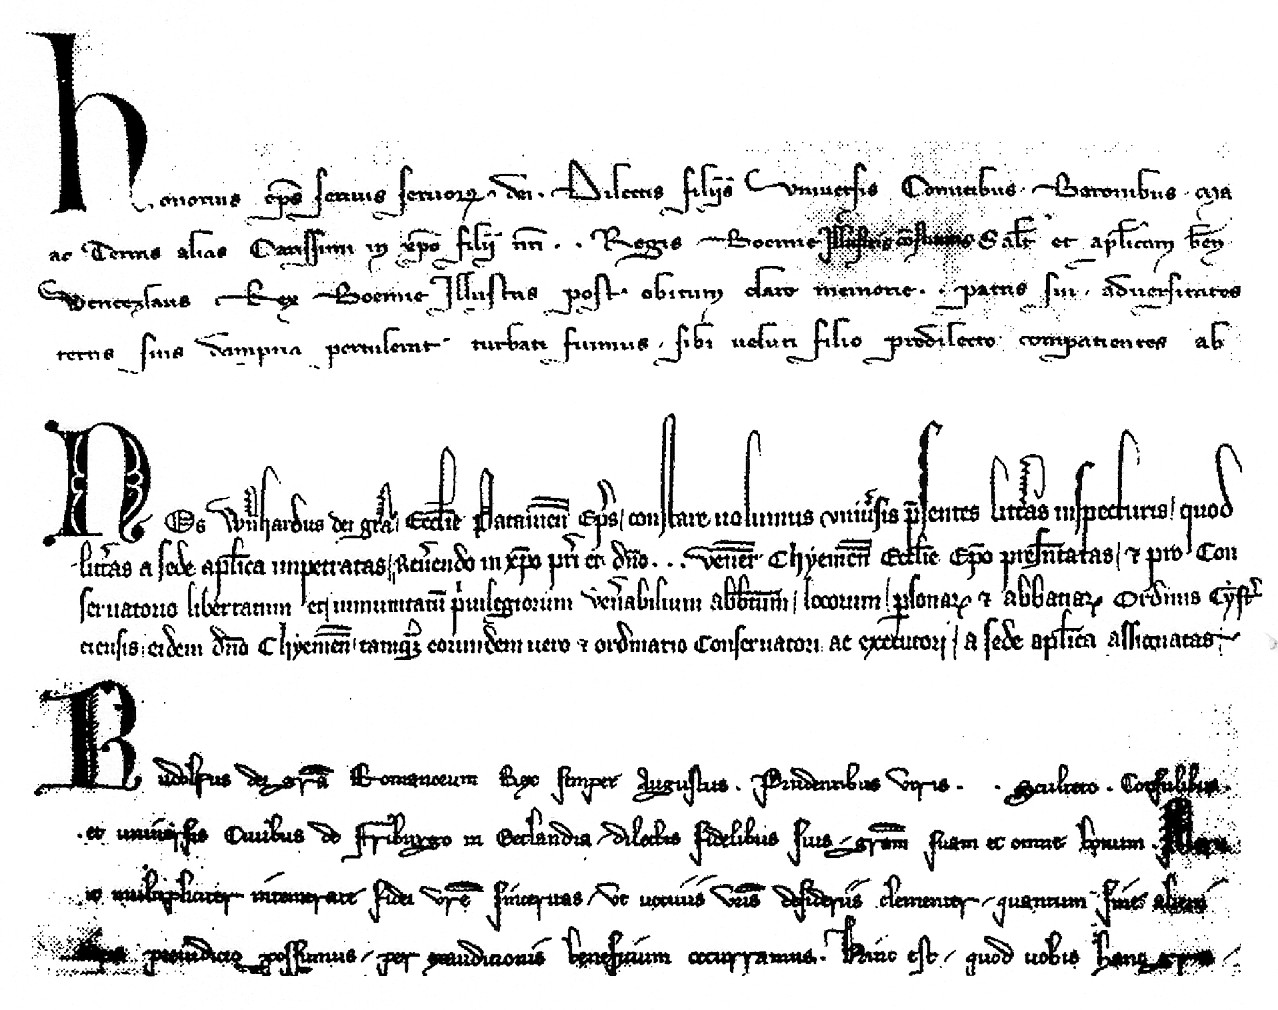 honorius ep̄s servus servorꝝ dei. Dilectis filiis Universis Comitibus. Baronibus.
ac Terris alias Carissimi in xp̄o filii nr̄i . . Regis Boemie Illustris Salt̄ et ap̄licam bēn
Wenceslaus Rex Boemie Illustris post obitum clare memorie . . patris sui. adversitates
suis dampna pertulerit turbati fuimus. sibi veluti filio predilecto compatientes ab
NOs dei grā Eccl̄ie Patavien̄ Ep̄s/ constare volumus univ̄sis p̄sentes litt̄as inspecturis/ quod
litt̄as a sede ap̄lica impetratas/ Rev̄endo in xp̄o pr̄i et dn̄o . . . Chyemen̄ Eccl̄ie Ep̄o presn̄tatas/ ⁊ pro Con
servatorio libertatum et immunitatū p̄vilegiorum ven̄abilium abb̄tum/ locorum/ p̄sonaꝝ ⁊ abbatiaꝝ Ordinis Cyst̄
ciensis. eidem dn̄o Chyemen̄ tamqͣ eorundem vero ⁊ ordinario Conservatori ac executori/ a sede ap̄lica assignatas
Rudolfus dei grā Romanorum Rex semper Augustus. Prudentibus viris. . Sculteto. Consulibus.
et univ̄sis Civibus de Friburgo in Oechlandia dilectis fidelibus suis grām suam et omne bonum.
multipliciter intemerate fidei vr̄e sinceritas/ ut votivis vr̄is desideriis clementer/ quantum sine
preiudicio possumus/ per exauditionis beneficium occurramus. Hinc est/ quod vobis hanc